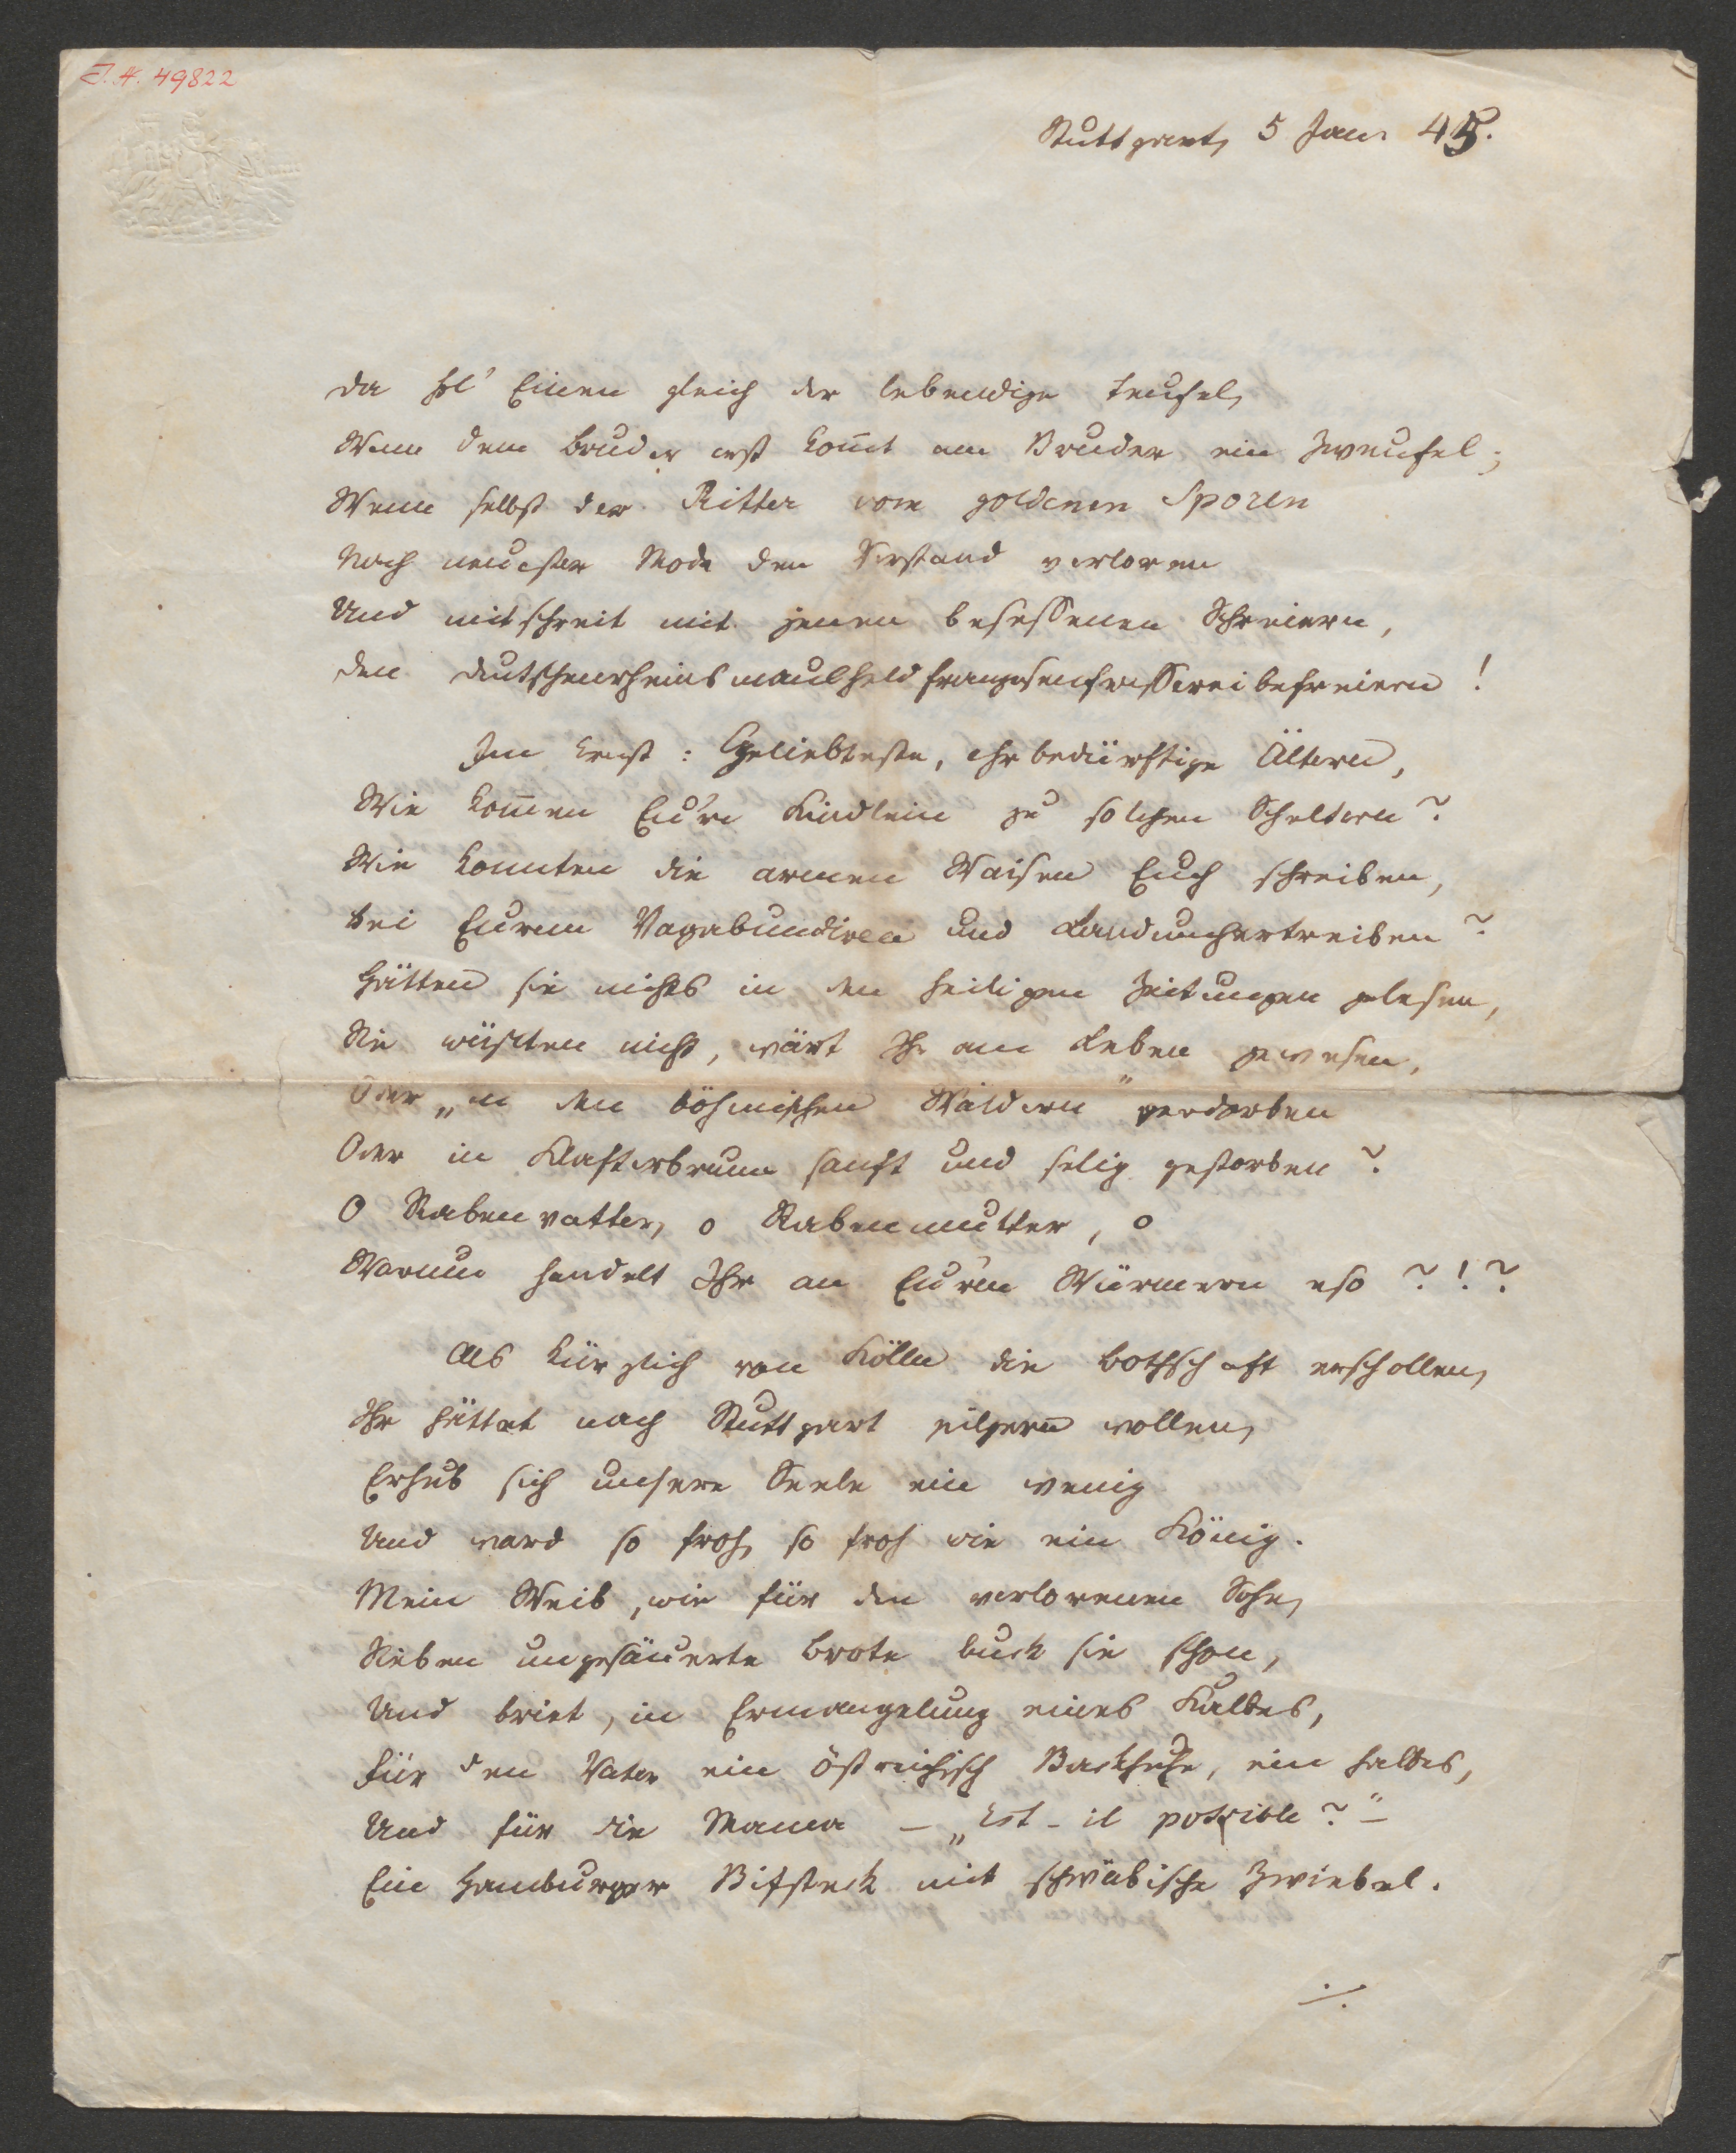 I.N. 49822
Stuttgart, 5 Jan. 45.
Da hol' Einen gleich der lebendige Teufel,
Wenn dem Bruder erst kom̄t am Bruder ein Zweufel;
Wenn selbst der Ritter vom goldenen Sporen
Nach neuester Mode den Verstand verloren
Und mitschreit mit jenen besessenen Schreiern,
Den Deutschenrheinsmaulheldfranzosenfresserei befreiern!
Im Ernst: Geliebteste, ehrbedürftige Ältern,
Wie kom̄en Eu're Kindlein zu solchen Scheltern?
Wie konnten die armen Waisen Euch schreiben,
bei Eurem Vagabundiren und Landumhertreiben?
Hätten sie nichts in den heiligen Zeitungen gelesen,
Sie wüßten nicht, wärt Ihr am Leben gewesen,
Oder „in den böhmischen Wäldern" verdorben
Oder in Klosterbrunn sanft und selig gestorben?
O Rabenvatter, o Rabenmutter, o
Warum handelt Ihr an Eu'rn Würmern eso?!?
Als kürzlich von Kölln die Bothschaft erschollen,
Ihr hättet nach Stuttgart pilgern wollen,
Erhub sich unsere Seele ein wenig
Und ward so froh, so froh wie ein König.
Mein Weib, wie für den verlorenen Sohn,
Sieben ungesäuerte Brote buck sie schon,
Und briet, in Ermangelung eines Kalbes,
Für den Vater ein östreichisch Backhuhn, ein halbes,
Und für die Mama – „Est-il possible?" –
Ein Hamburger Bifsteck mit schwäbische Zwiebel.
./.